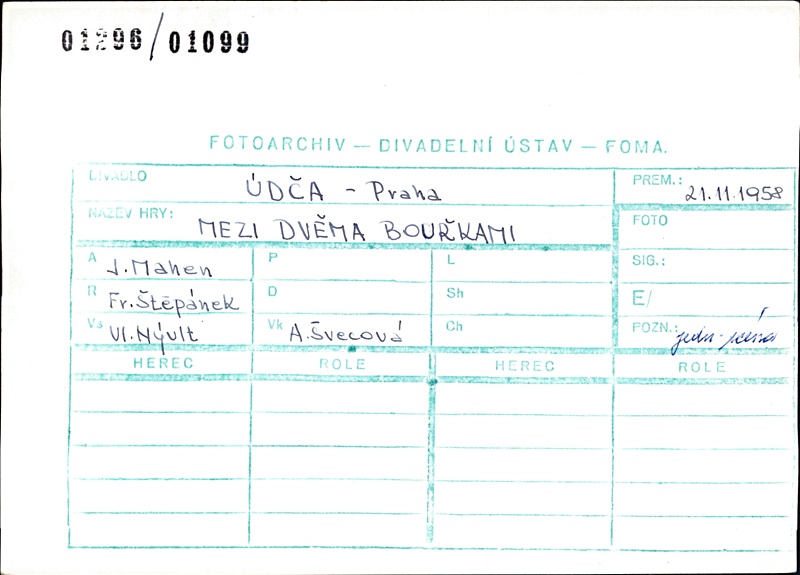 01296/01099
FOTOARCHIV — DIVADELNÍ ÚSTAV — FOMA.
DIVADLO ÚDČA - Praha PREM.: 21.11.1958
NÁZEV HRY: MEZI DVĚMA BOUŘKAMI FOTO
A J. Mahen P L SIG.:
R Fr. Štěpánek D Sh E/
Vs Vl. Nývlt Vk A. Švecová Ch POZN.:
HEREC ROLE HEREC ROLE